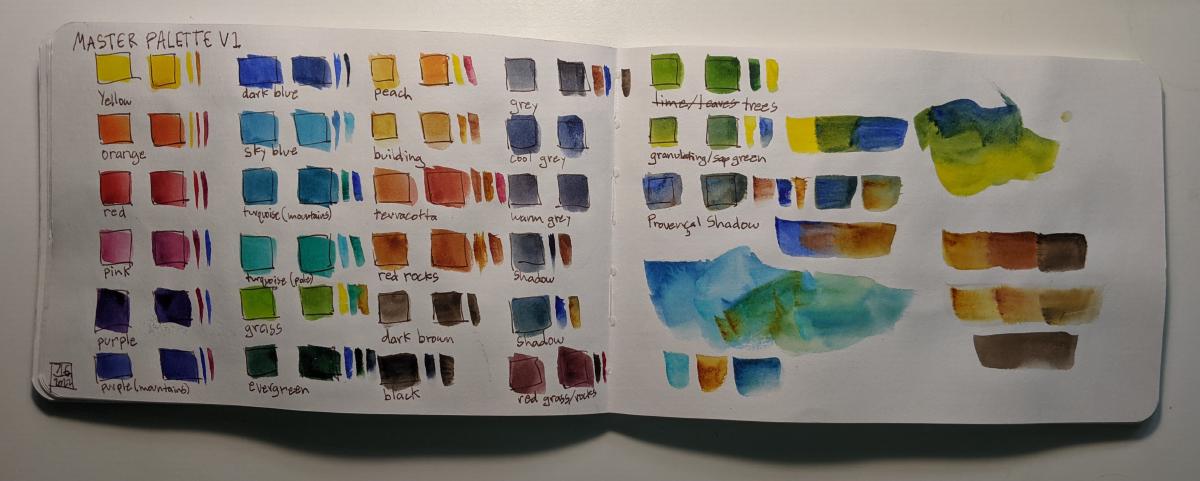 MASTER PALETTE V1
Yellow
orange
red
pink
purple
purple (mountains)
dark blue
sky blue
turquoise (mountains)
turquoise (pale)
grass
evergreen
peach
building
terracotta
red rocks
dark brown
black
grey
cool grey
warm grey
shadow
shadow
red grass/rocks
lime/leaves trees
granulating/sap green
Provençal Shadow